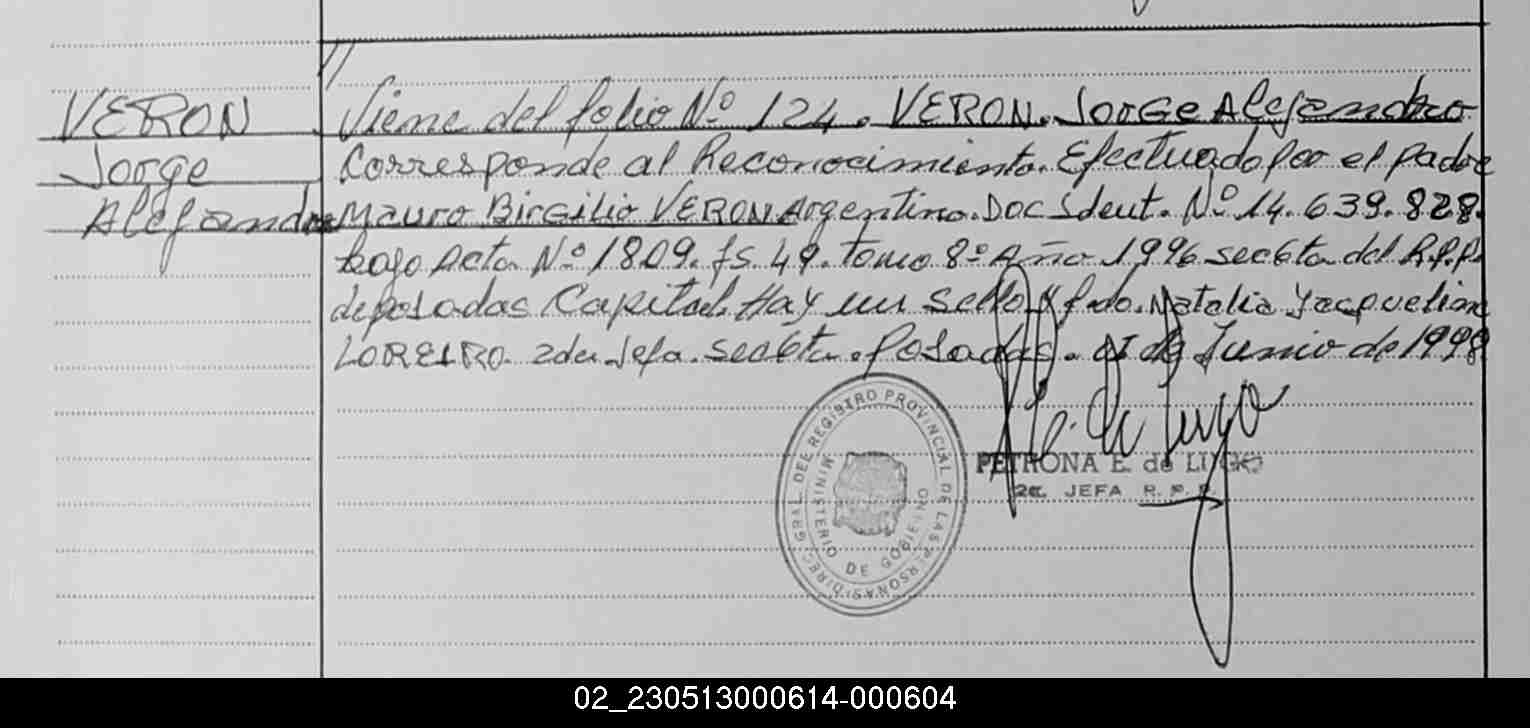 //
VERON
Jorge
Alejandro
Viene del folio Nº 124. VERON. Jorge Alejandro
Corresponde al Reconocimiento. Efectuado por el padre
Mauro Birgilio VERON Argentino. Doc Ident. Nº 14.639.828.
bajo Acta Nº 1809. fs. 49. tomo 8º Año 1996 secc6ta del R.P.P.
de posadas Capital. Hay un sello y fdo. Natalia Jacqueline
LOREIRO. 2da Jefa. secc6ta. Posadas. 01 de Junio de 1998
PETRONA E. de LUGO
2a. JEFA R. P. P.
DIREC. GRAL. DEL REGISTRO PROVINCIAL DE LAS PERSONAS
MINISTERIO DE GOBIERNO
02_230513000614-000604